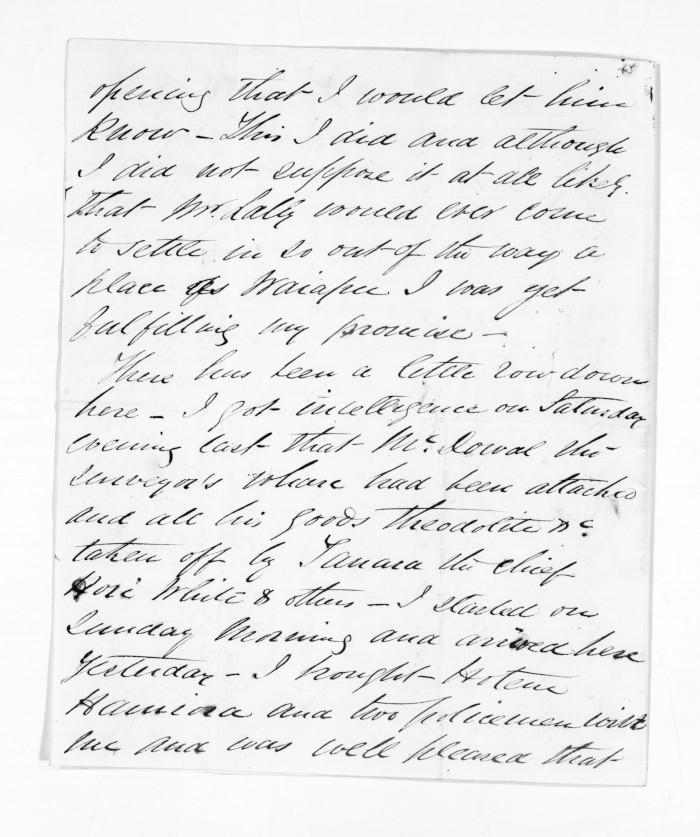 opening that I would let him
know - This I did and although
I did not suppose it at all likely
that Mr. Lally would ever come
to settle in so out of the way a
place as Waiapu I was yet
fulfilling my promise -
There has been a little row down
here - I got intelligence on Saturday
evening last that Mc. Dowal the
surveyor's whare had been attached
and all his goods theodolite &c
taken off by Tanara the chief
Hori White & others - I started on
Sunday Morning and arrived here
Yesterday - I brought Hotene
Hamiora and two policemen with
me and was well pleased that